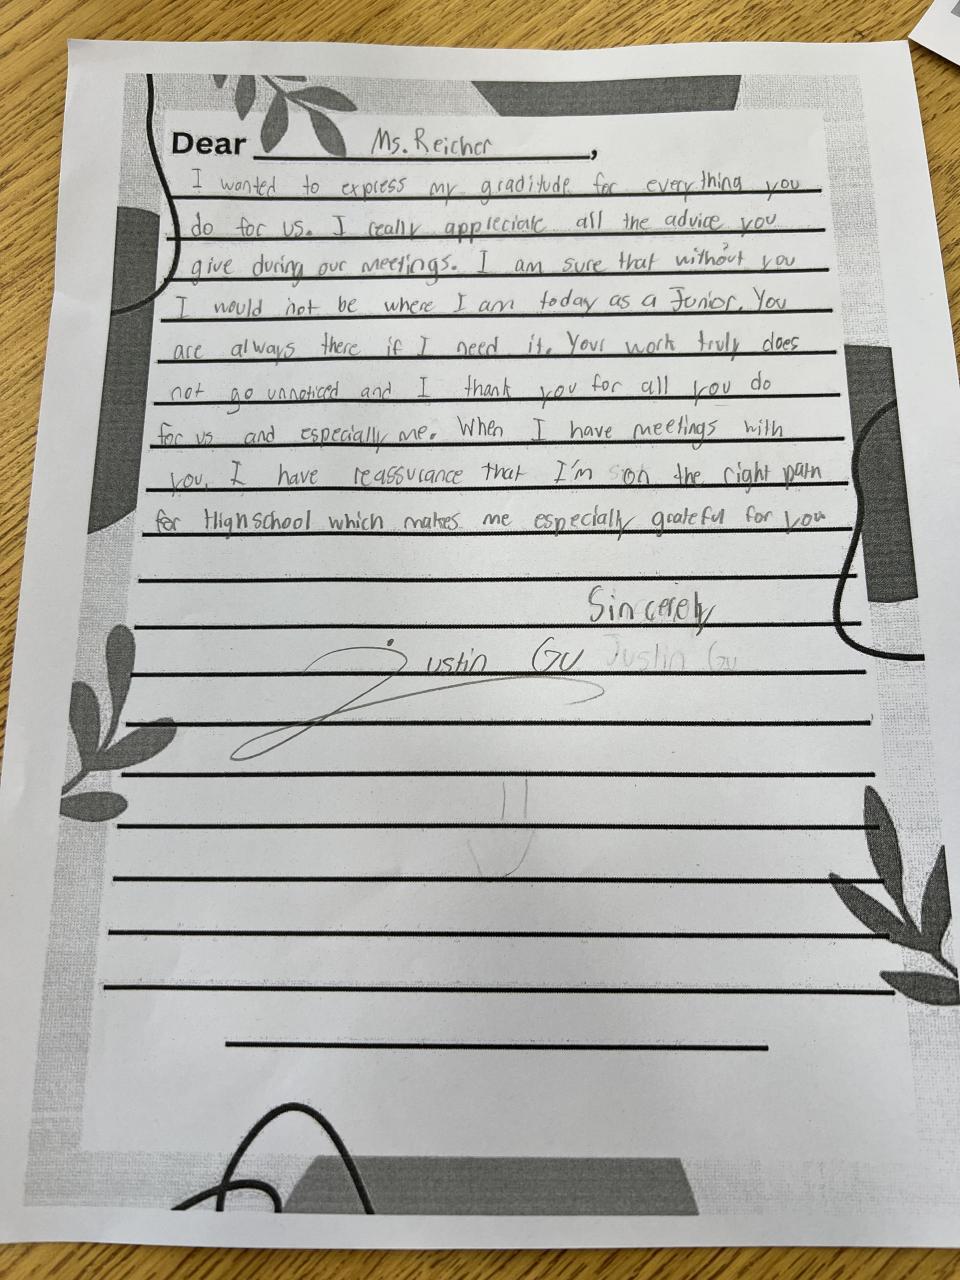 Dear Ms. Reicher,
I wanted to express my graditude for everything you
do for us. I really appreciate all the advice you
give during our meetings. I am sure that without you
I would not be where I am today as a Junior. You
are always there if I need it. Your work truly does
not go unnoticed and I thank you for all you do
for us and especially me. When I have meetings with
you, I have reassurance that I'm on the right path
for Highschool which makes me especially grateful for you
Sincerely
Justin Gu Justin Gu